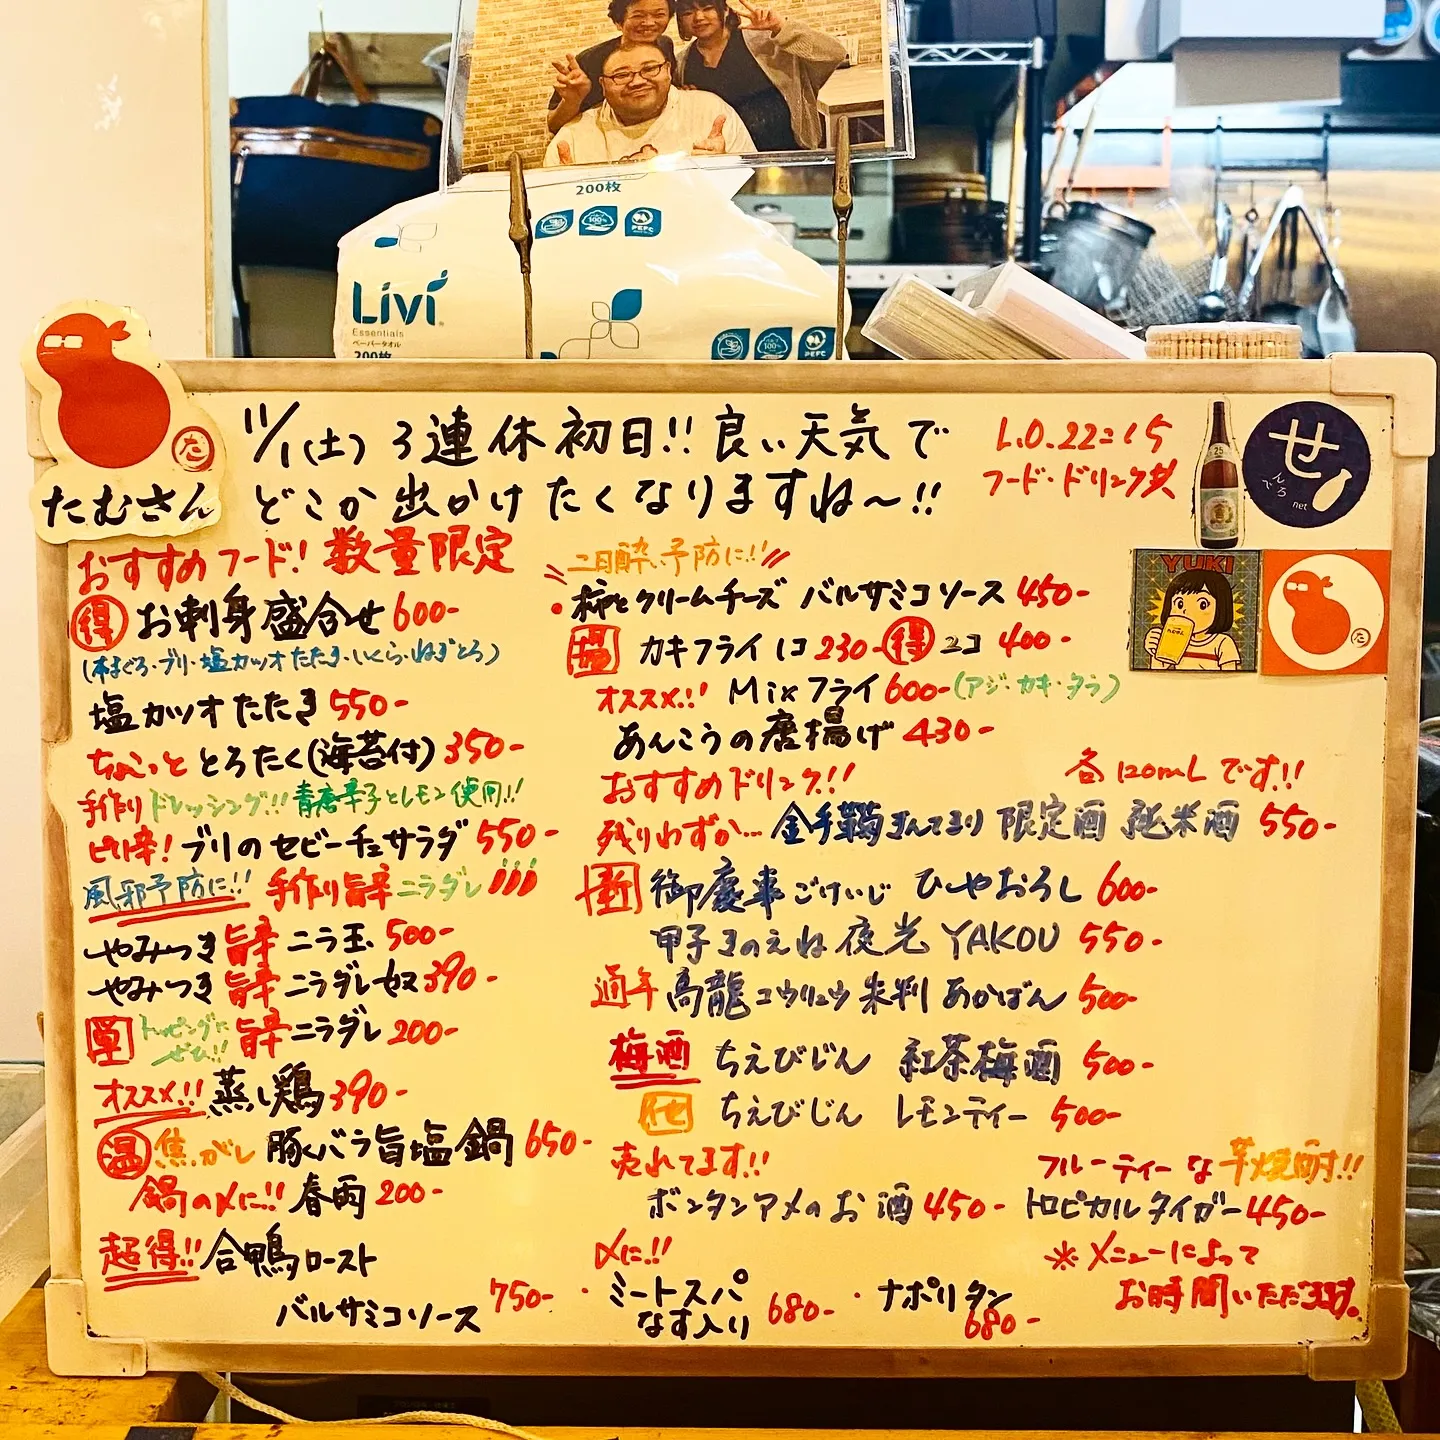 200枚
100%
PEFC
Livi
Essentials
ペーパータオル
200枚
100%
PEFC
た
たむさん
11/1(土) 3連休初日!! 良い天気で
どこか出かけたくなりますね〜!!
L.O.22:15
フード・ドリンク共
25
せ
でんろ
net
YUKI
た
おすすめフード! 数量限定
得 お刺身盛合せ 600-
(本まぐろ・ブリ・塩カツオたたき・いくら・ねぎとろ)
塩カツオたたき 550-
ちょこっと とろたく(海苔付) 350-
手作りドレッシング!! 青唐辛子とレモン使用!!
ピリ辛! ブリのセビーチェサラダ 550-
風邪予防に!! 手作り旨辛ニラダレ
やみつき旨辛ニラ玉 500-
やみつき旨辛ニラダレ奴 390-
単 トッピングに
ぜひ!! 旨辛ニラダレ 200-
オススメ!! 蒸し鶏 390-
温 焦がし豚バラ旨塩鍋 650-
鍋の〆に!! 春雨 200-
超得!! 合鴨ロースト
バルサミコソース 750-
二日酔い予防に!!
・柿とクリームチーズ バルサミコソース 450-
揚 カキフライ 1コ 230- 得 2コ 400-
オススメ!! Mixフライ 600- (アジ・カキ・タラ)
あんこうの唐揚げ 430-
おすすめドリンク!!
各120mLです!!
残りわずか… 金手鞠 きんてまり 限定酒 純米酒 550-
新 御慶事 ごけいじ ひやおろし 600-
甲子 きのえね 夜光 YAKOU 550-
通年 高龍 コウリュウ 朱判 あかばん 500-
梅酒 ちえびじん 紅茶梅酒 500-
他 ちえびじん レモンティー 500-
売れてます!!
ボンタンアメのお酒 450-
フルーティーな芋焼酎!!
トロピカルタイガー 450-
〆に!!
・ミートスパ
なす入り 680-
・ナポリタン
680-
※メニューによって
お時間いただきます。